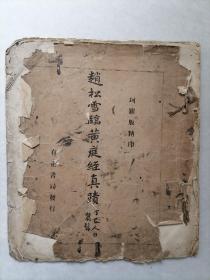 珂羅版精印
趙松雪臨黃庭經真蹟
有正書局發行